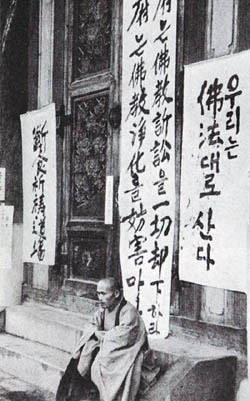 우리는
佛法대로 산다
府는 佛敎訴訟을 一切却下하라
府는 佛敎淨化를 妨害마
斷食祈禱道場